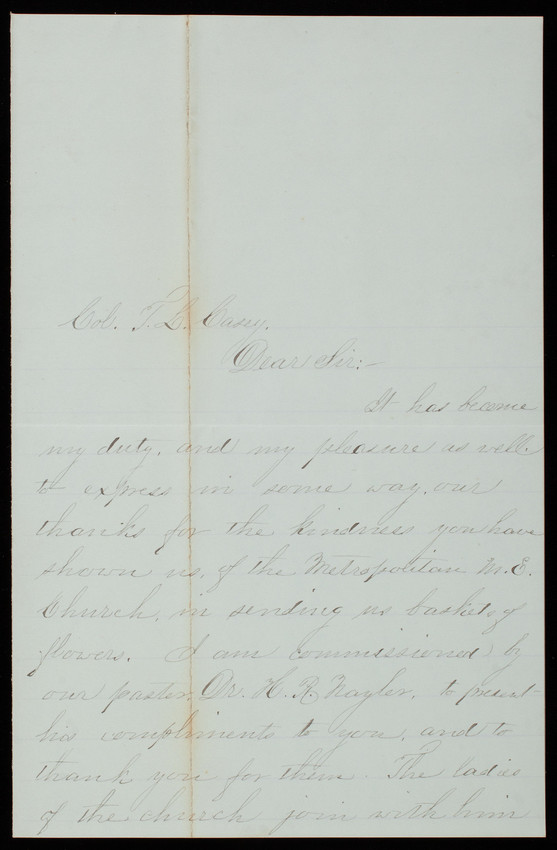 Col. T. L. Casey.
Dear Sir:-
It has become
my duty, and my pleasure as well,
to express in some way, our
thanks for the kindness you have
shown us, of the Metropolitan M.E.
Church, in sending us baskets of
flowers. I am commissioned by
our pastor, Dr. H. R. Naylor, to present
his compliments to you, and to
thank you for them. The ladies
of the church join with him